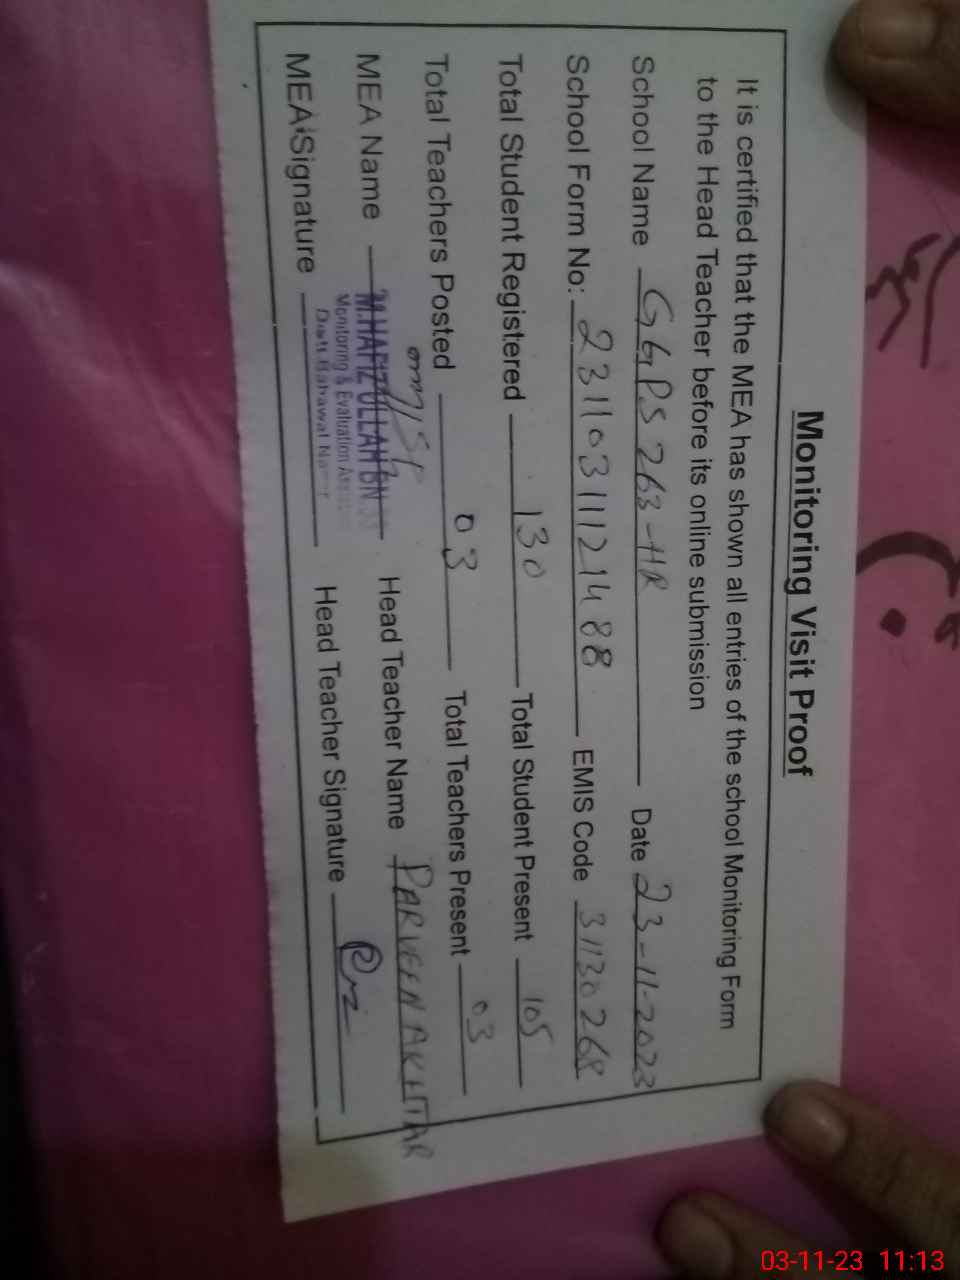 Monitoring Visit Proof
It is certified that the MEA has shown all entries of the school Monitoring Form
to the Head Teacher before its online submission
School Name GGPS 263-HR Date 23-11-2023
School Form No: 23110311121488 EMIS Code 31130268
Total Student Registered 130 Total Student Present 105
Total Teachers Posted 03 Total Teachers Present 03
MEA Name M.HAFIZ ULLAH Head Teacher Name PARVEEN AKHTAR
Monitoring & Evaluation
MEA Signature Head Teacher Signature
03-11-23 11:13